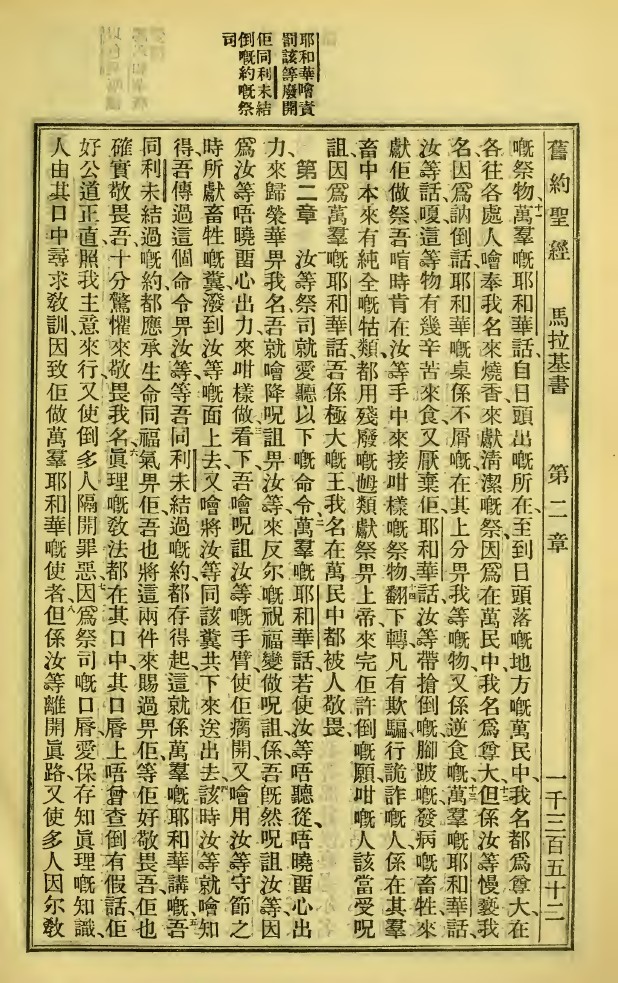 舊約聖經　馬拉基書　第二章　一千三百五十二
耶和華噲責
罰該等廢開
佢同利未結
倒嘅約嘅祭
司
嘅祭物、萬羣嘅耶和華話、十一自日頭出嘅所在、至到日頭落嘅地方嘅萬民中、我名都爲尊大、在
各往各處人噲奉我名來燒香、來獻淸潔嘅祭、因爲在萬民中、我名爲尊大、十二但係汝等慢褻我
名、因爲訥倒話、耶和華嘅桌係不屑嘅、在其上分畀我等嘅物、又係逆食嘅、十三萬羣嘅耶和華話、
汝等話、嗄、這等物有幾辛苦來食、又厭棄佢、耶和華話、汝等帶搶倒嘅、腳跛嘅、發病嘅畜牲、來
獻佢做祭、吾喧時肯在汝等手中來接咁樣嘅祭物、十四翻下轉、凡有欺騙行詭詐嘅人、係在其羣
畜中、本來有純全嘅牯類、都用殘廢嘅𡜵類、獻祭畀上帝、來完佢許倒嘅願、咁嘅人該當受呪
詛、因爲萬羣嘅耶和華話、吾係極大嘅王、我名在萬民中都被人敬畏、
第二章　汝等祭司就愛聽以下嘅命令、二萬羣嘅耶和華話、若使汝等唔聽從、唔曉畱心出
力來歸榮華畀我名、吾就噲降呪詛畀汝等、來反尔嘅祝福、變做呪詛、係吾旣然呪詛汝等、因
爲汝等唔曉畱心出力來咁樣做、三看下、吾噲呪詛汝等嘅手臂、使佢癘開、又噲用汝等守節之
時所獻畜牲嘅糞、潑到汝等嘅面上去、又噲將汝等同該糞、共下來送出去、四該時汝等就噲知
得吾傳過這個命令畀汝等、等吾同利未結過嘅約都存得起、這就係萬羣嘅耶和華講嘅、五吾
同利未結過嘅約、都應承生命同福氣畀佢、吾也將這兩件來賜過畀佢、等佢好敬畏吾、佢也
確實敬畏吾、十分驚懼來敬畏我名、六眞理嘅敎法都在其口中、其口唇上唔曾查倒有假話、佢
好公道正直、照我主意來行、又使倒多人隔開罪惡、七因爲祭司嘅口唇、愛保存知眞理嘅知識、
人由其口中尋求敎訓、因致佢做萬羣耶和華嘅使者、八但係汝等離開眞路、又使多人因尔敎